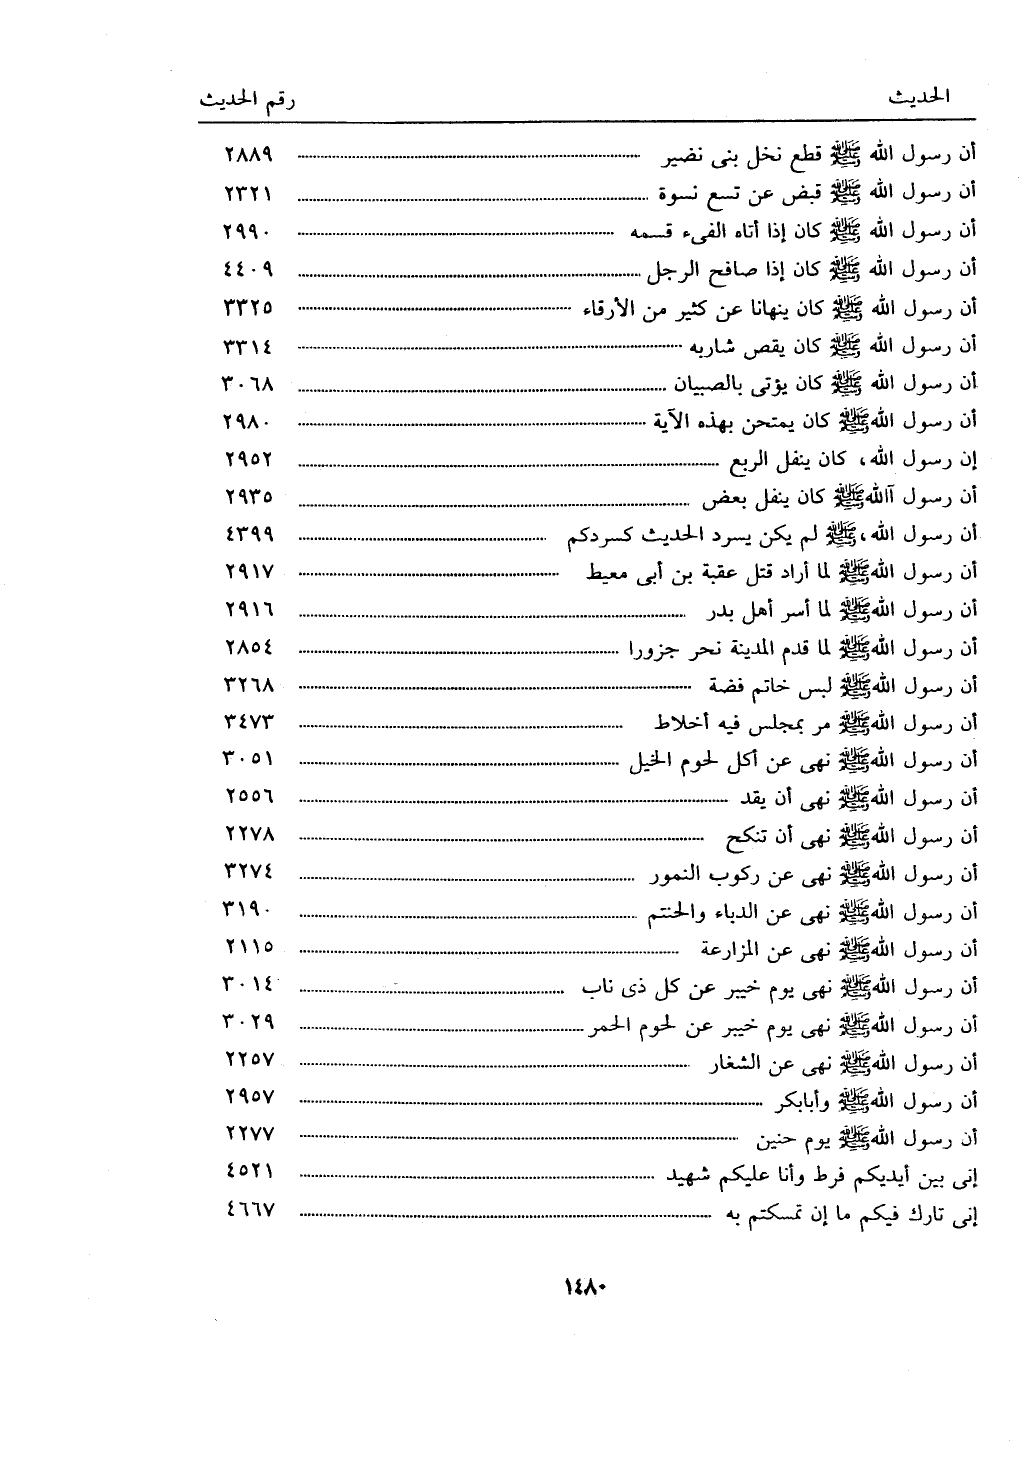 الحديث رقم الحديث
أن رسول الله ﷺ قطع نخل بنى نضير ........ ٢٨٨٩
أن رسول الله ﷺ قبض عن تسع نسوة ........ ٢٣٢١
أن رسول الله ﷺ كان إذا أتاه الفىء قسمه ........ ٢٩٩٠
أن رسول الله ﷺ كان إذا صافح الرجل ........ ٤٤٠٩
أن رسول الله ﷺ كان ينهانا عن كثير من الأرقاء ........ ٣٣٢٥
أن رسول الله ﷺ كان يقص شاربه ........ ٣٣١٤
أن رسول الله ﷺ كان يؤتى بالصبيان ........ ٣٠٦٨
أن رسول الله ﷺ كان يمتحن بهذه الآية ........ ٢٩٨٠
إن رسول الله، كان ينفل الربع ........ ٢٩٥٢
أن رسول آالله ﷺ كان ينفل بعض ........ ٢٩٣٥
أن رسول الله، ﷺ لم يكن يسرد الحديث كسردكم ........ ٤٣٩٩
أن رسول الله ﷺ لما أراد قتل عقبة بن أبى معيط ........ ٢٩١٧
أن رسول الله ﷺ لما أسر أهل بدر ........ ٢٩١٦
أن رسول الله ﷺ لما قدم المدينة نحر جزورا ........ ٢٨٥٤
أن رسول الله ﷺ لبس خاتم فضة ........ ٣٢٦٨
أن رسول الله ﷺ مر بمجلس فيه أخلاط ........ ٣٤٧٣
أن رسول الله ﷺ نهى عن أكل لحوم الخيل ........ ٣٠٥١
أن رسول الله ﷺ نهى أن يقد ........ ٢٥٥٦
أن رسول الله ﷺ نهى أن تنكح ........ ٢٢٧٨
أن رسول الله ﷺ نهى عن ركوب النمور ........ ٣٢٧٤
أن رسول الله ﷺ نهى عن الدباء والحنتم ........ ٣١٩٠
أن رسول الله ﷺ نهى عن المزارعة ........ ٢١١٥
أن رسول الله ﷺ نهى يوم خيبر عن كل ذى ناب ........ ٣٠١٤
أن رسول الله ﷺ نهى يوم خيبر عن لحوم الحمر ........ ٣٠٢٩
أن رسول الله ﷺ نهى عن الشغار ........ ٢٢٥٧
أن رسول الله ﷺ وأبابكر ........ ٢٩٥٧
أن رسول الله ﷺ يوم حنين ........ ٢٢٧٧
إنى بين أيديكم فرط وأنا عليكم شهيد ........ ٤٥٢١
إنى تارك فيكم ما إن تمسكتم به ........ ٤٦٦٧
١٤٨٠